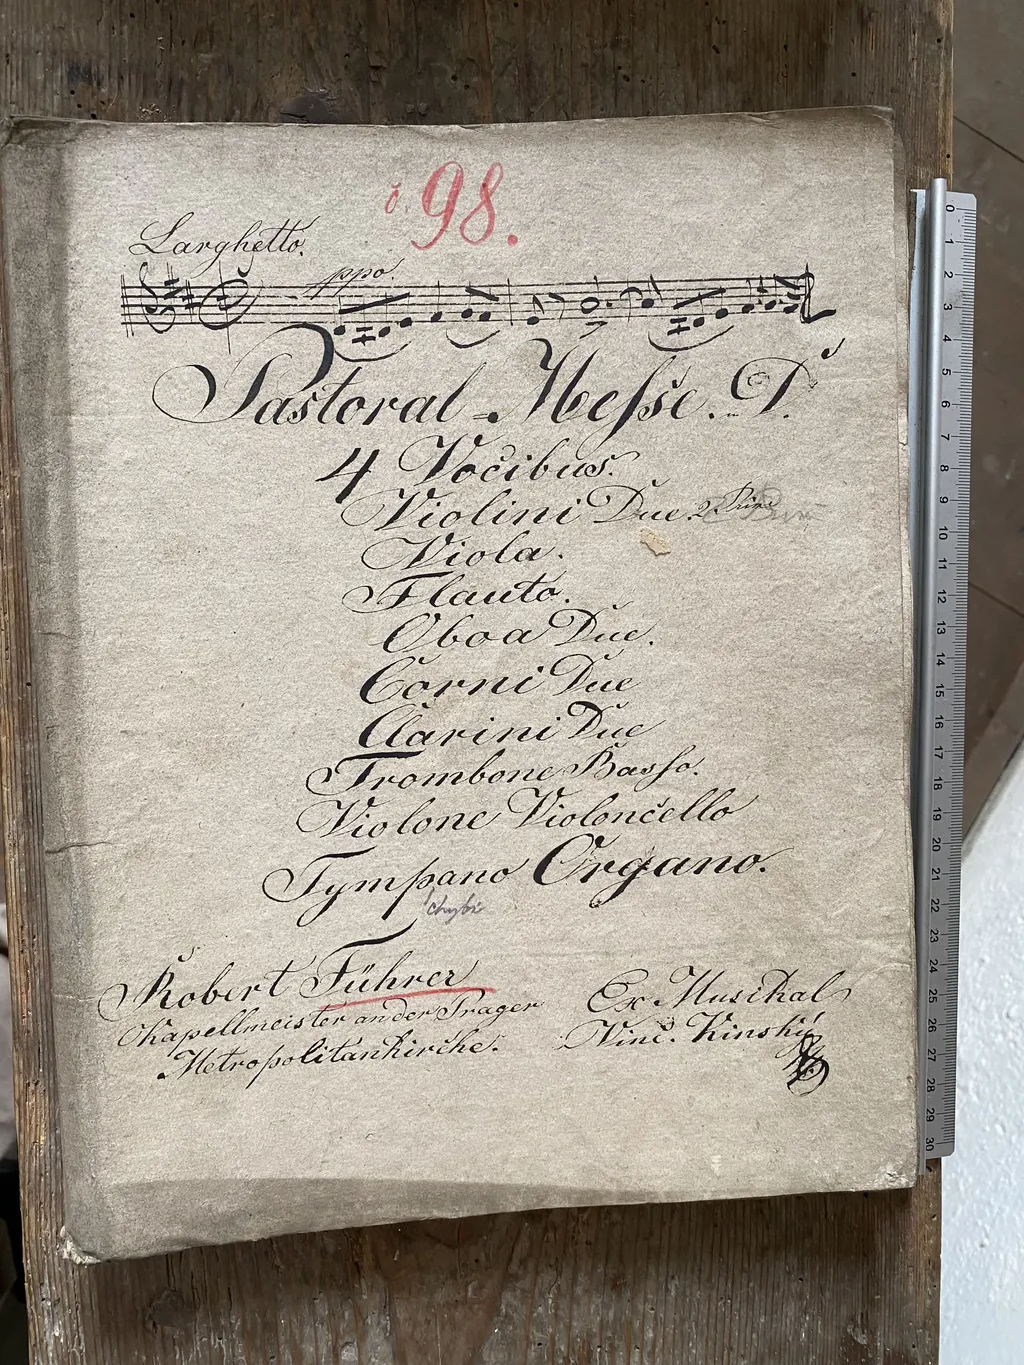 č. 98.
Larghetto.
ppo.
Pastoral-Messe. in D.
4 Vocibus.
Violini Due. 2 Rip.
Viola.
Flauto.
Oboa Due.
Corni Due
Clarini Due
Trombone Basso.
Violone Violoncello
Tympano Organo.
chybí
Robert Führer
Kapellmeister an der Prager
Metropolitankirche.
Ex Musikal
Vinc. Kinský
0 1 2 3 4 5 6 7 8 9 10 11 12 13 14 15 16 17 18 19 20 21 22 23 24 25 26 27 28 29 30